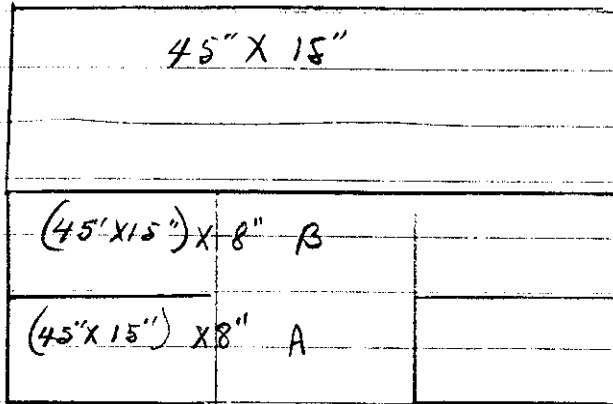 45" X 15"
(45" X15") X 8" B
(45" X 15") X8" A